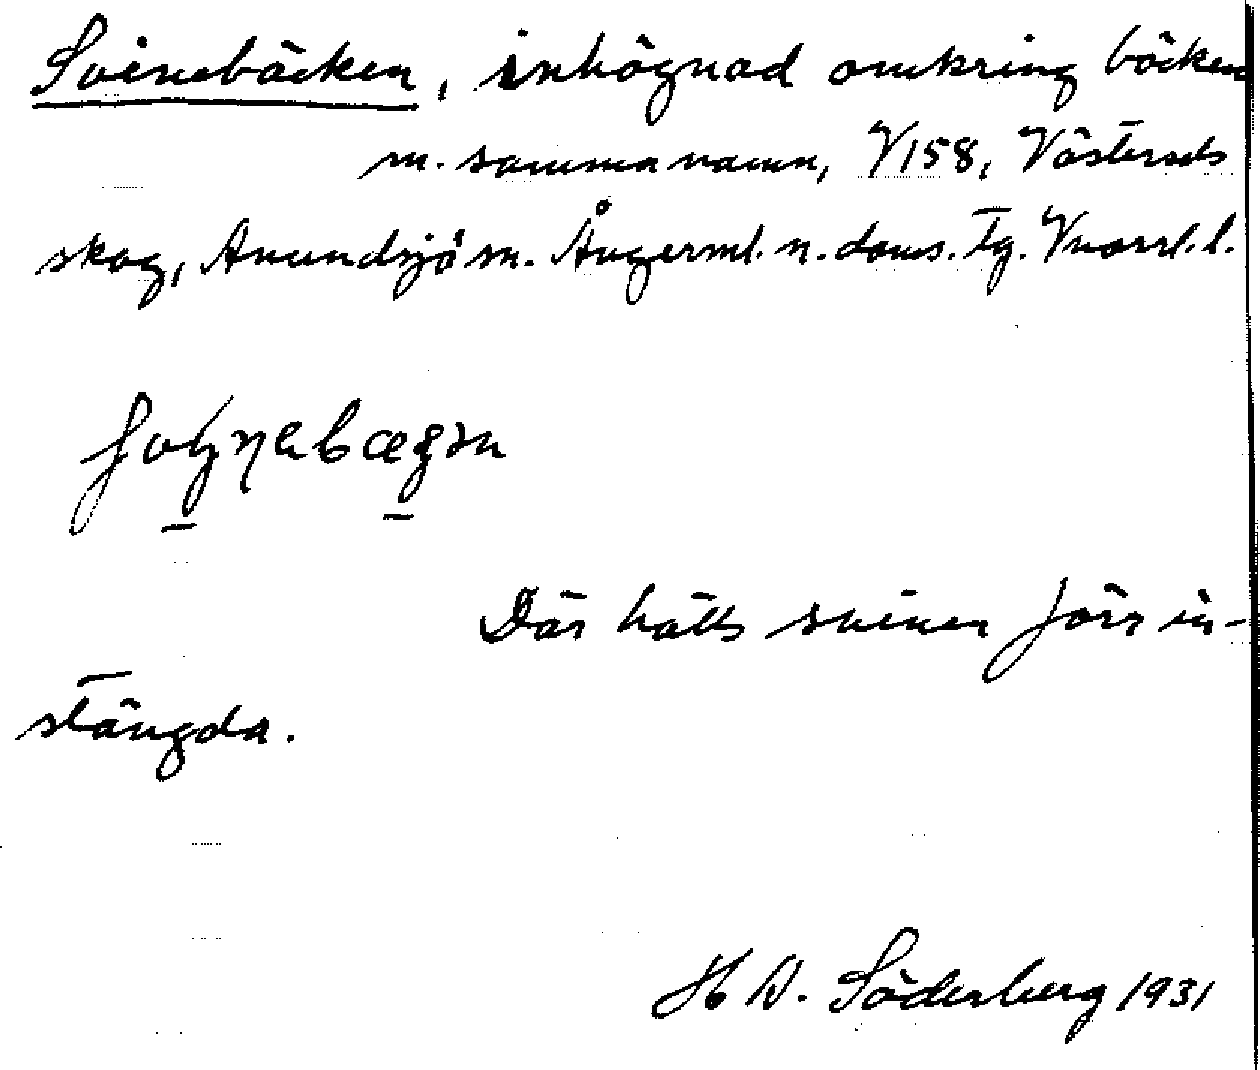 Svinebäcken, inhägnad omkring bäcken
m. samma namn, V158, Västersels
skog, Anundsjö sn. Ångerml. n. doms. Tg. Vnorrl. l.
Där hålls svinen förr in-
stängda.
H D. Söderberg 1931